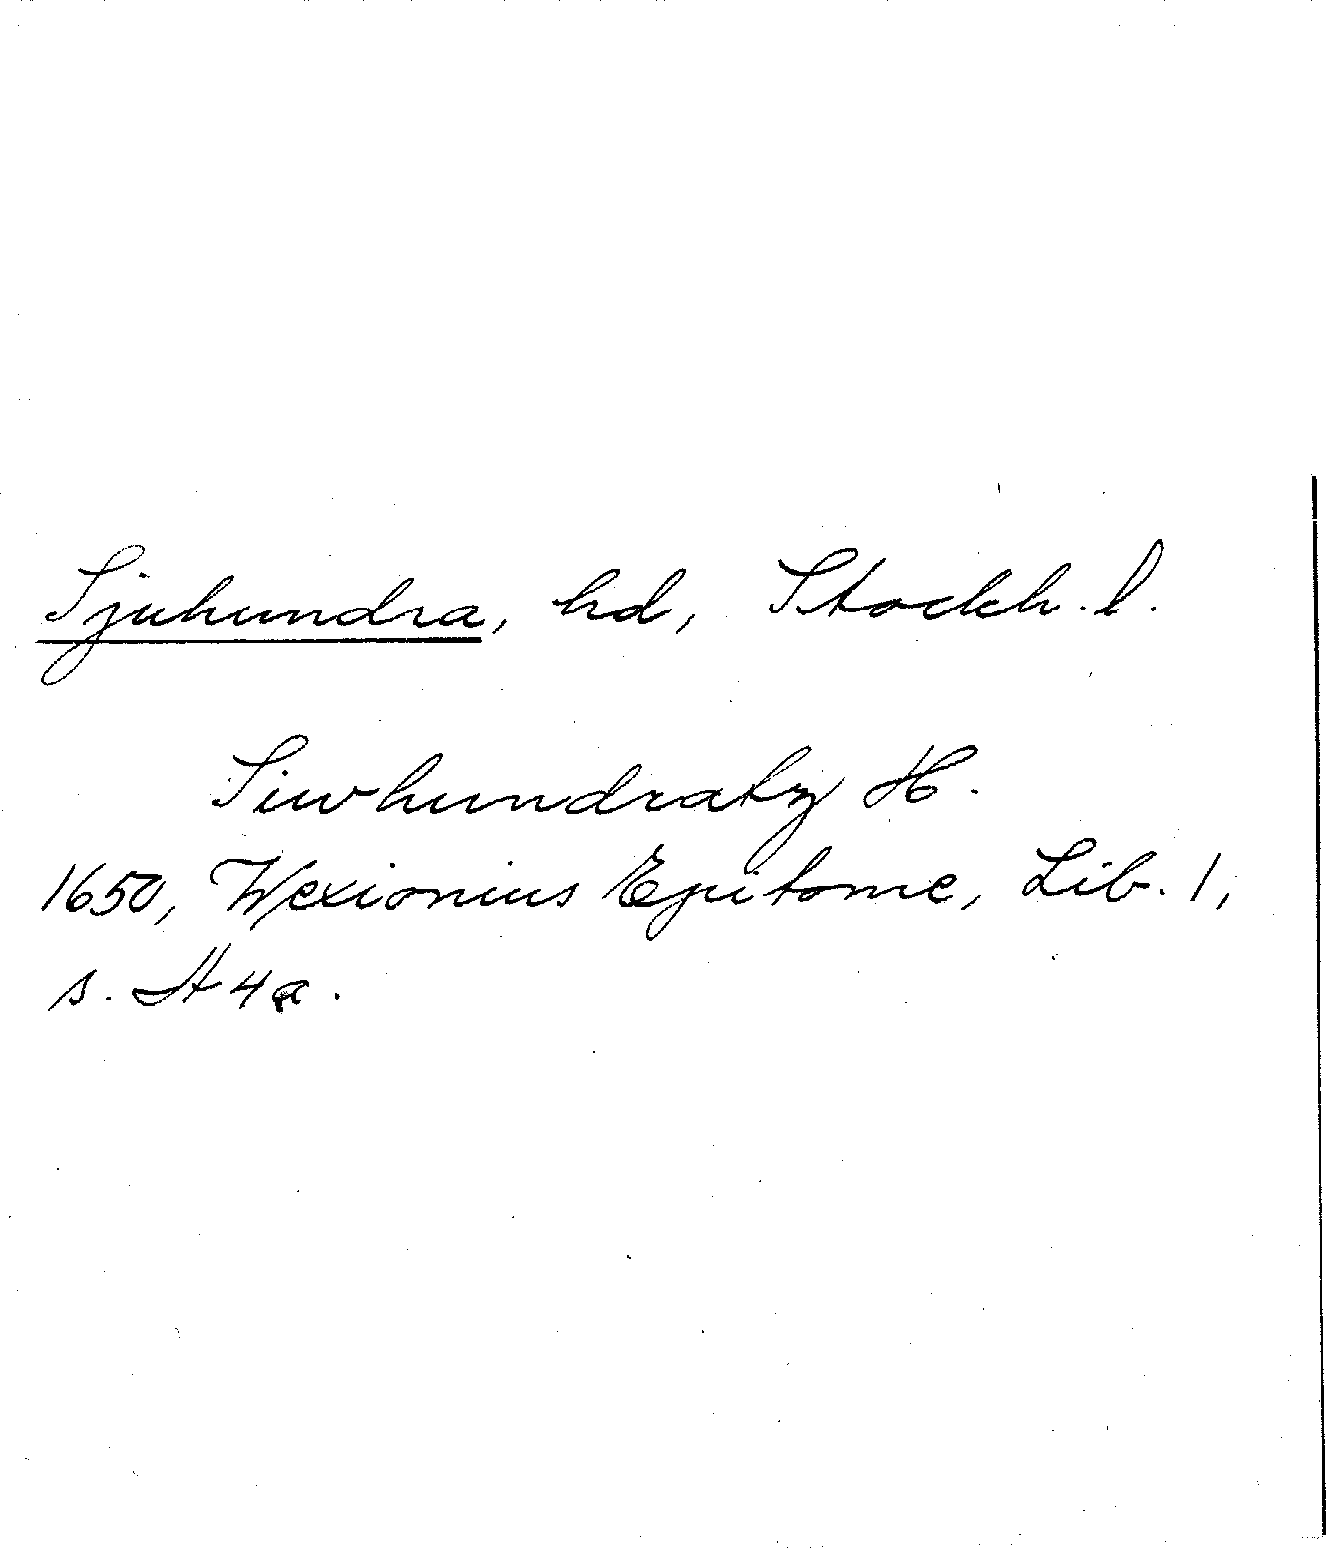 Sjuhundra, hd, Stockh. l.
Siwhundratz H.
1650, Wexionius Epitome, Lib. 1,
s. H 4 a.